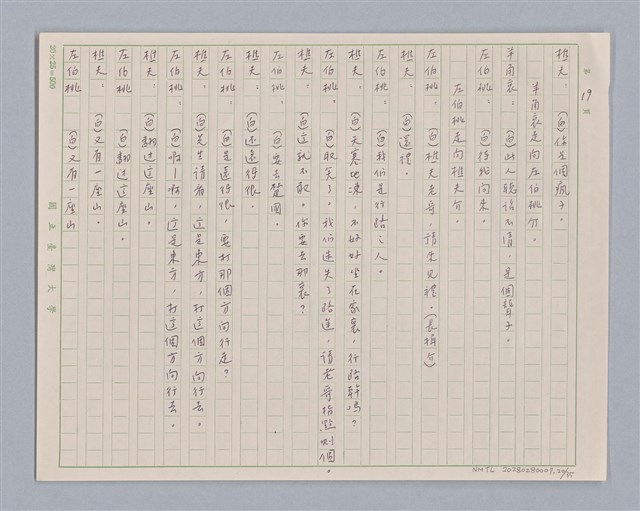 第19頁
樵夫：(白)你是個瘋子。
羊角哀走向左伯桃介。
羊角哀：(白)此人聽話不清，是個聾子。
左伯桃：(白)待我問來。
左伯桃走向樵夫介。
左伯桃：(白)樵夫老哥，請來見禮。(長揖介)
樵夫：(白)還禮。
左伯桃：(白)我们是行路之人。
樵夫：(白)天寒地凍，不好好坐在家裏，行路幹嗎？
左伯桃：(白)取笑了。我们迷失了路途，請老哥指點則個。
樵夫：(白)這就不敢。你要去那裏？
左伯桃：(白)要去楚國。
樵夫：(白)还遠得很。
左伯桃：(白)是遠得很，要打那個方向行走？
樵夫：(白)先生請看，这是東方，打这個方向行去。
左伯桃：(白)啊！啊，这是東方，打这個方向行去。
樵夫：(白)翻过这座山。
左伯桃：(白)翻过这座山。
樵夫：(白)又有一座山。
左伯桃：(白)又有一座山
20×25=500
國立臺灣大學
NMTL 20280280007.24/55